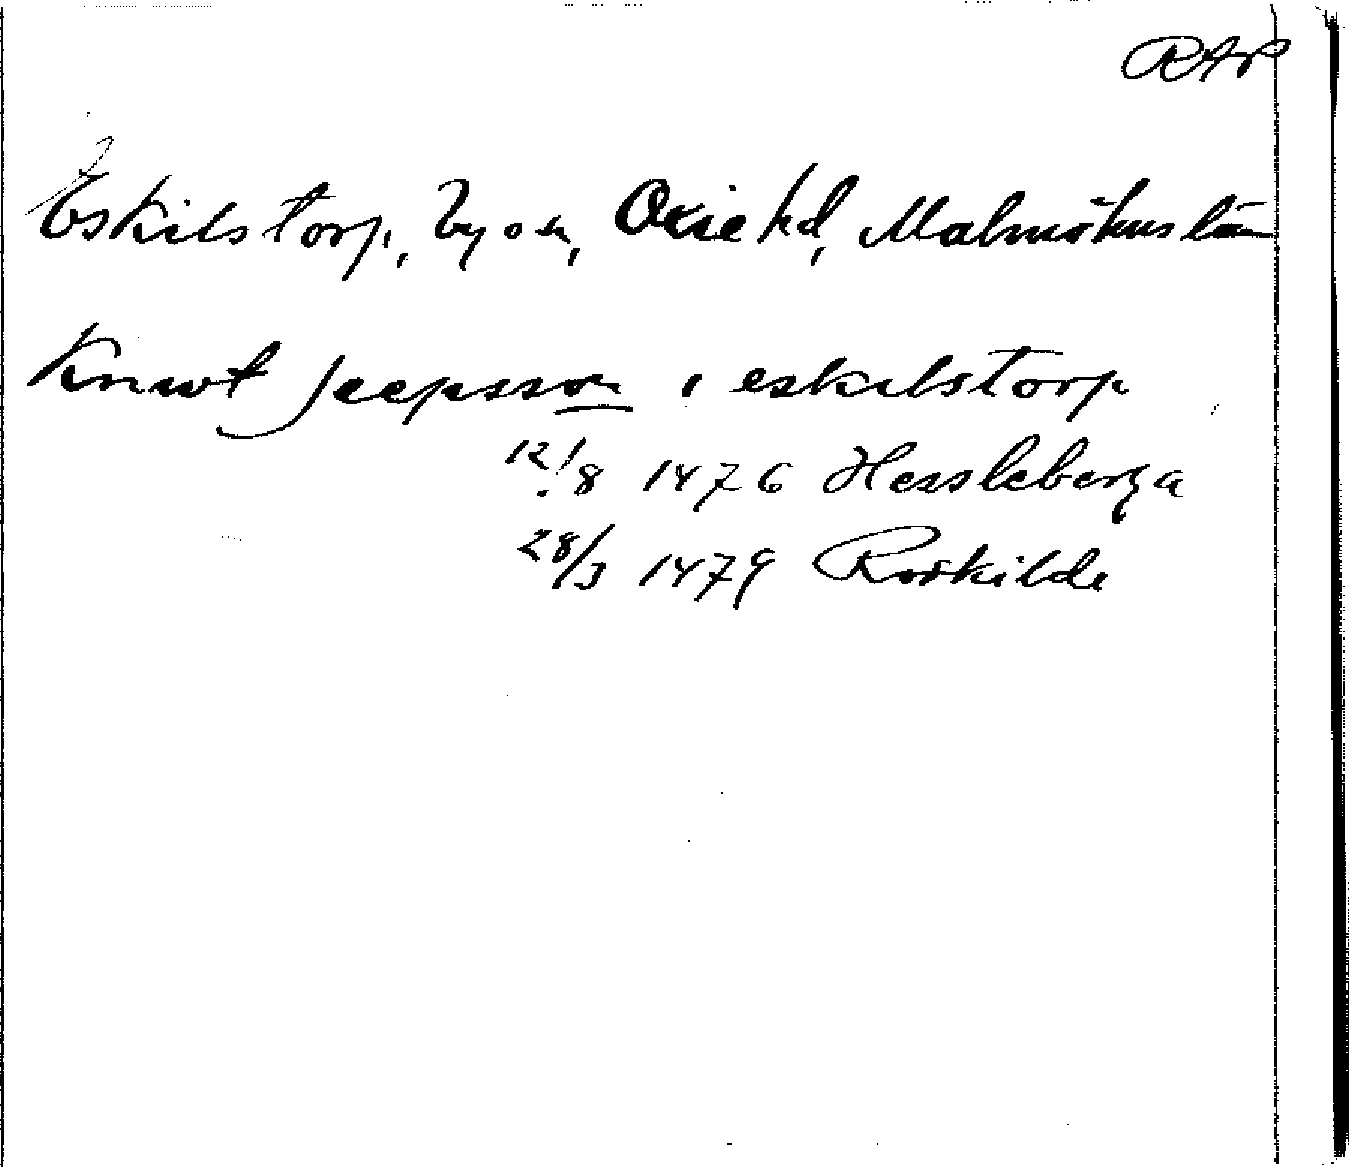 RAP
Eskilstorp, by o sn, Oxie hd, Malmöhus län
Knwt Jeepsson i eskilstorp
12/8 1476 Hessleberga
28/3 1479 Roskilde